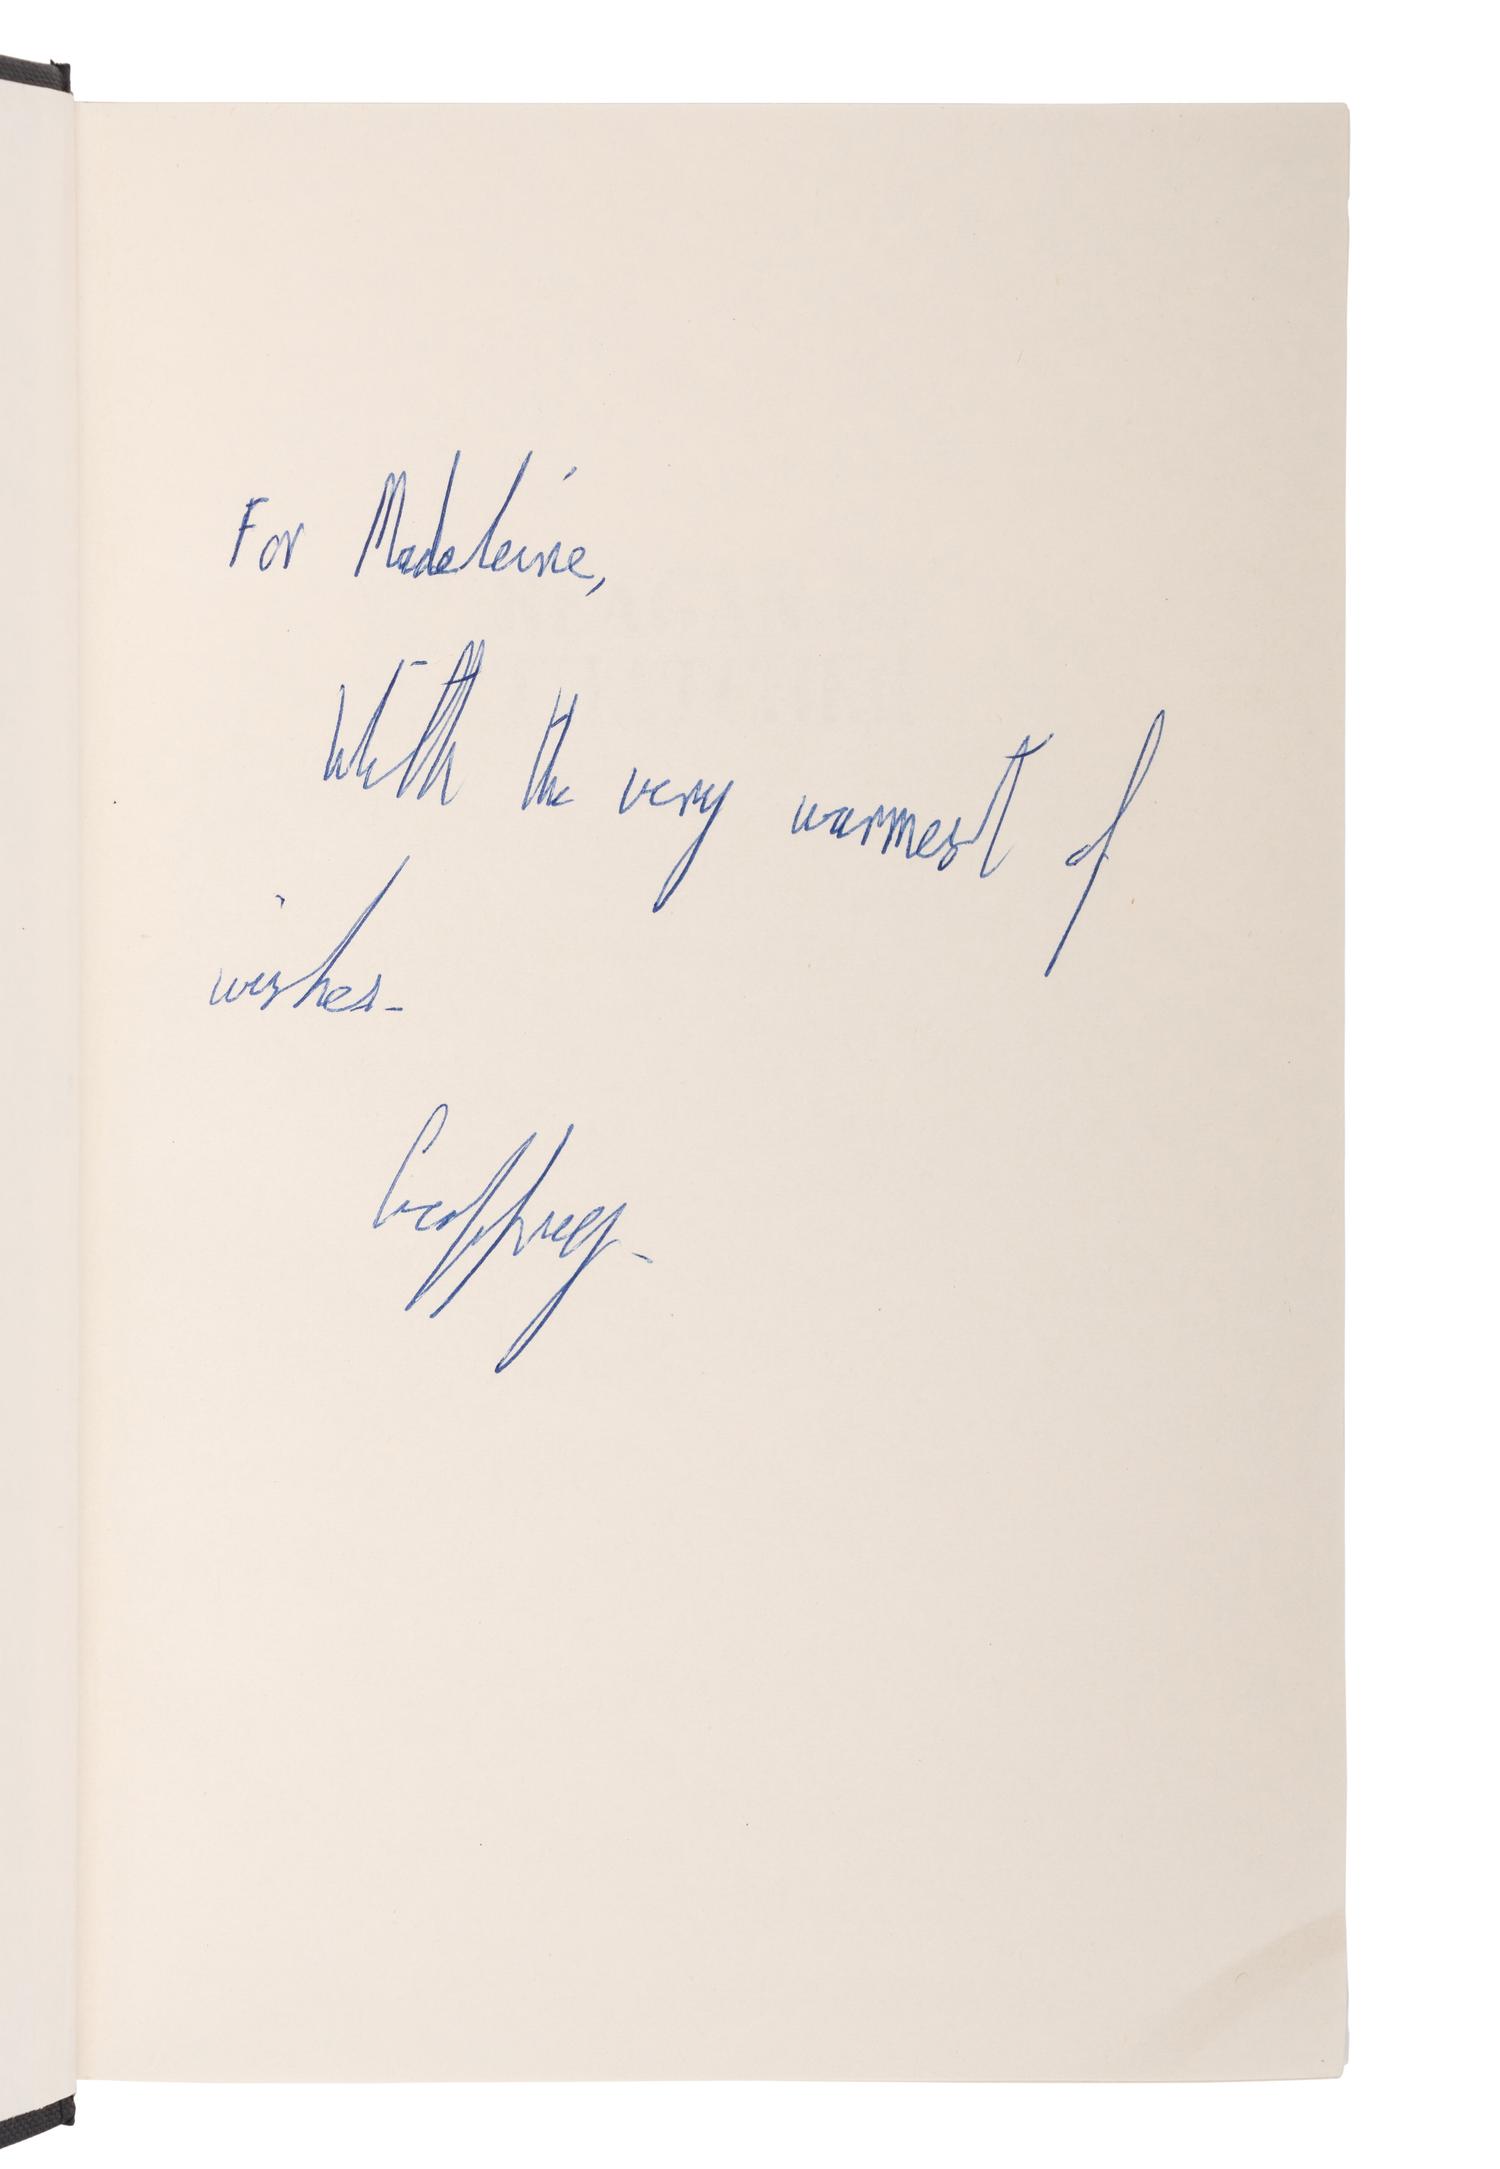 For Madeleine,
With the very warmest of
wishes-
Geoffrey-